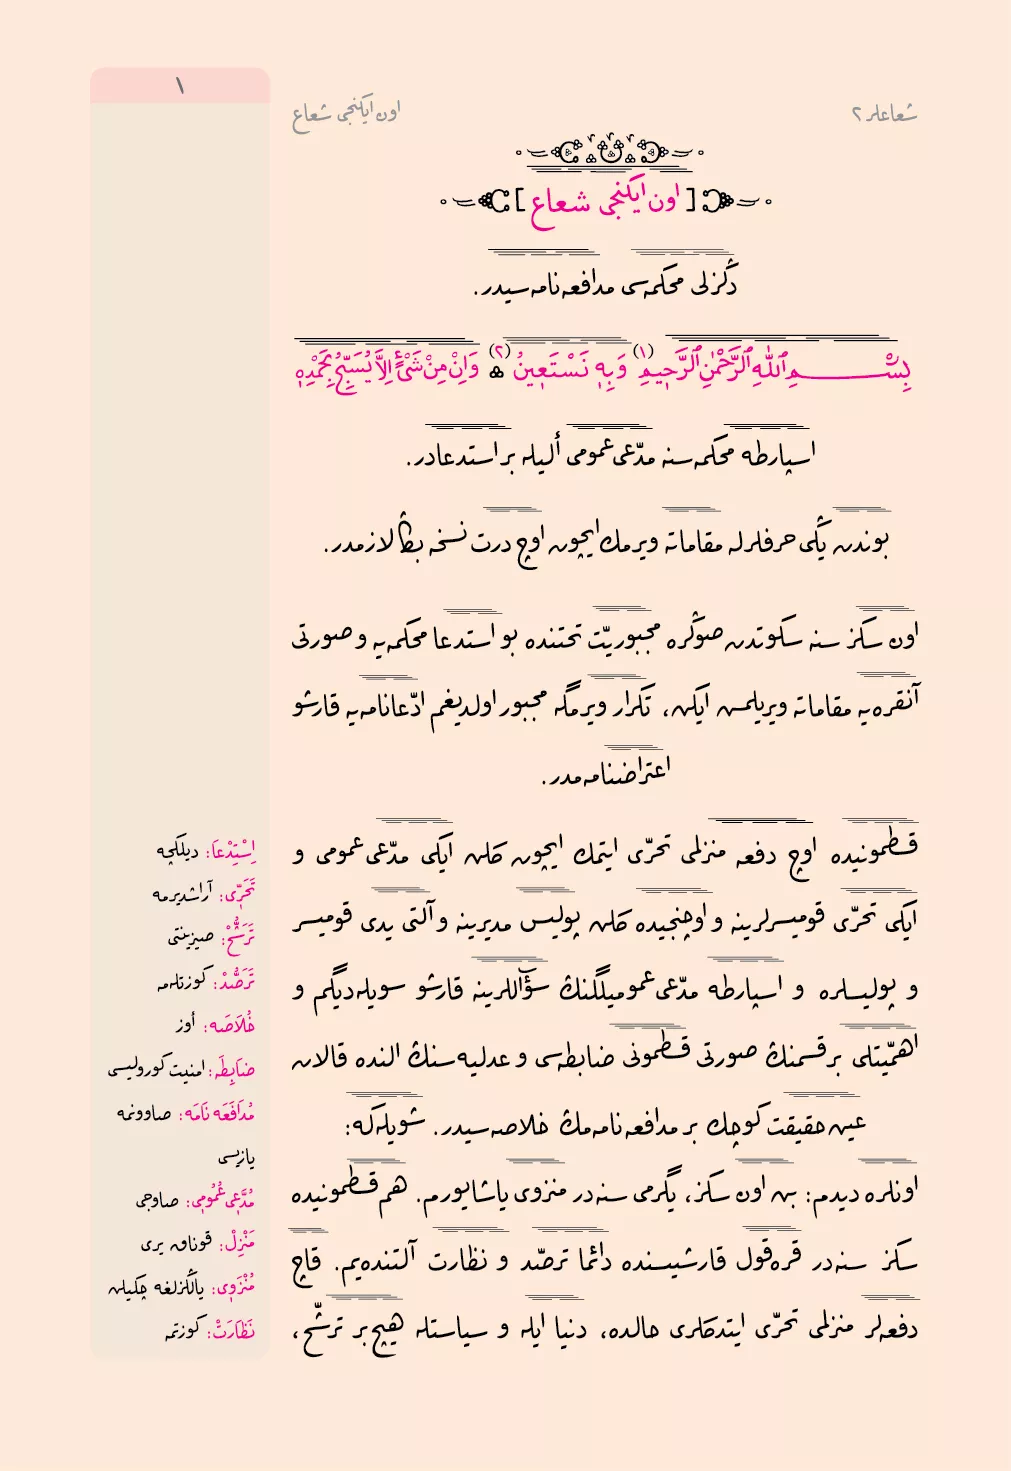 ١
شعاعلر ٢
اون ايكنجى شعاع
[اون ايكنجى شعاع]
دڭزلى محكمه‌سى مدافعه‌نامه‌سيدر.
بِسْمِ اللّٰهِ الرَّحْمٰنِ الرَّحٖيمِ (١) وَبِهٖ نَسْتَعٖينُ (٢) ۞ وَاِنْ مِنْ شَىْءٍ اِلَّا يُسَبِّحُ بِحَمْدِهٖ
اسپارطه محكمه‌سنه مدّعى‌عمومى أليله بر استدعادر.
بوندن يڭى حرفلرله مقاماته ويرمك ايچون اوچ درت نسخه بڭا لازمدر.
اون سكز سنه سكوتدن صوڭره مجبوريّت تحتنده بو استدعا محكمه‌يه و صورتى
آنقره‌يه مقاماته ويريلمش ايكن، تكرار ويرمگه مجبور اولديغم ادّعانامه‌يه قارشو
اعتراضنامه‌مدر.
قسطمونيده اوچ دفعه منزلمى تحرّى ايتمك ايچون گلن ايكى مدّعى‌عمومى و
ايكى تحرّى قوميسرلرينه و اوچنجيده گلن پوليس مديرينه و آلتى يدى قوميسر
و پوليسلره و اسپارطه مدّعى‌عموميلگنڭ سؤاللرينه قارشو سويله‌ديگم و
اهمّيتلى بر قسمنڭ صورتى قسطمونى ضابطه‌سى و عدليه‌سنڭ النده قالان
عين حقيقت كوچك بر مدافعه‌نامه‌مڭ خلاصه‌سيدر. شويله‌كه:
اونلره ديدم: بن اون سكز، يگرمى سنه‌در منزوى ياشايورم. هم قسطمونيده
سكز سنه‌در قره‌قول قارشيسنده دائما ترصّد و نظارت آلتنده‌يم. قاچ
دفعه‌لر منزلمى تحرّى ايتدكلرى حالده، دنيا ايله و سياستله هيچ بر ترشّح،
اِسْتِدْعَا: ديلكچه
تَحَرّٖى: آراشديرمه
تَرَشُّحْ: صيزينتى
تَرَصُّدْ: كوزتله‌مه
خُلَاصَه: أوز
ضَابِطَه: امنيت كوروليسى
مُدَافَعَه‌نَامَه: صاوونمه
يازيسى
مُدَّعٖىِ‌عُمُومٖى: صاوجى
مَنْزِلْ: قوناق يرى
مُنْزَوٖى: يالڭزلغه چكيلن
نَظَارَتْ: كوزتمه